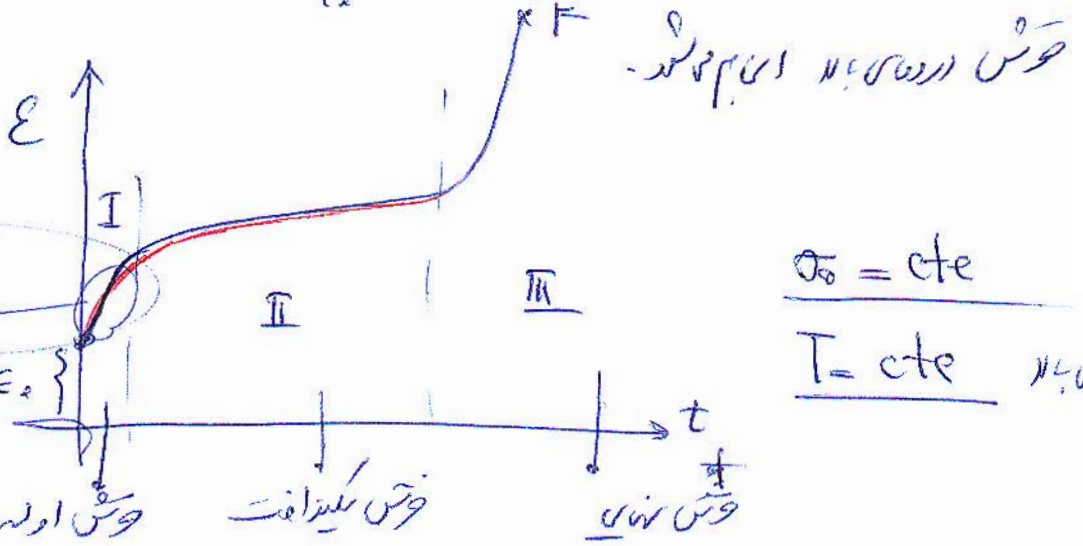 F
خزش در دمای بالا انجام می‌شود.
ε
I
II
III
σ₀ = cte
T = cte بالا
ε₀
t
خزش اولیه
خزش یکنواخت
خزش نهایی